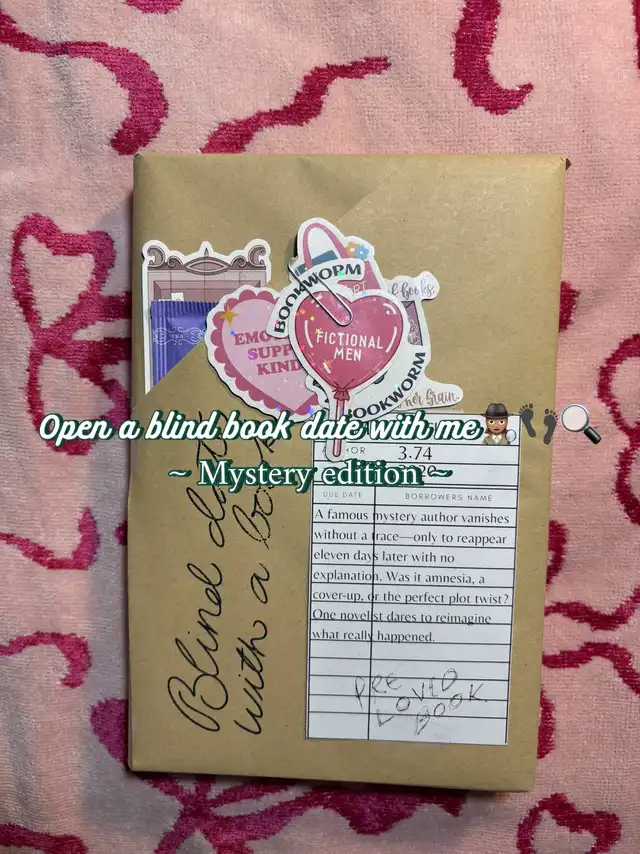 BOOKWORM
EMO
SUPP
KIND
FICTIONAL
MEN
BOOKWORM
books
Open a blind book date with me
~ Mystery edition ~
Blind date
with a book
3.74
DUE DATE BORROWERS NAME
A famous mystery author vanishes
without a trace—only to reappear
eleven days later with no
explanation. Was it amnesia, a
cover-up, or the perfect plot twist?
One novelist dares to reimagine
what really happened.
PRE
LOVED
BOOK